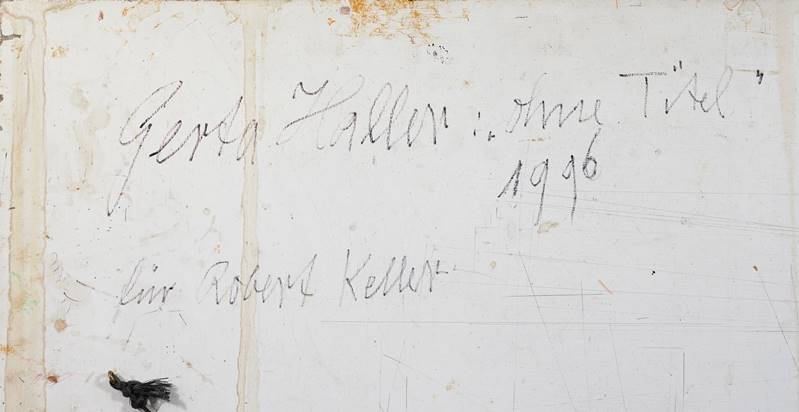 Gerta Haller: „ohne Titel"
1996
für Robert Keller